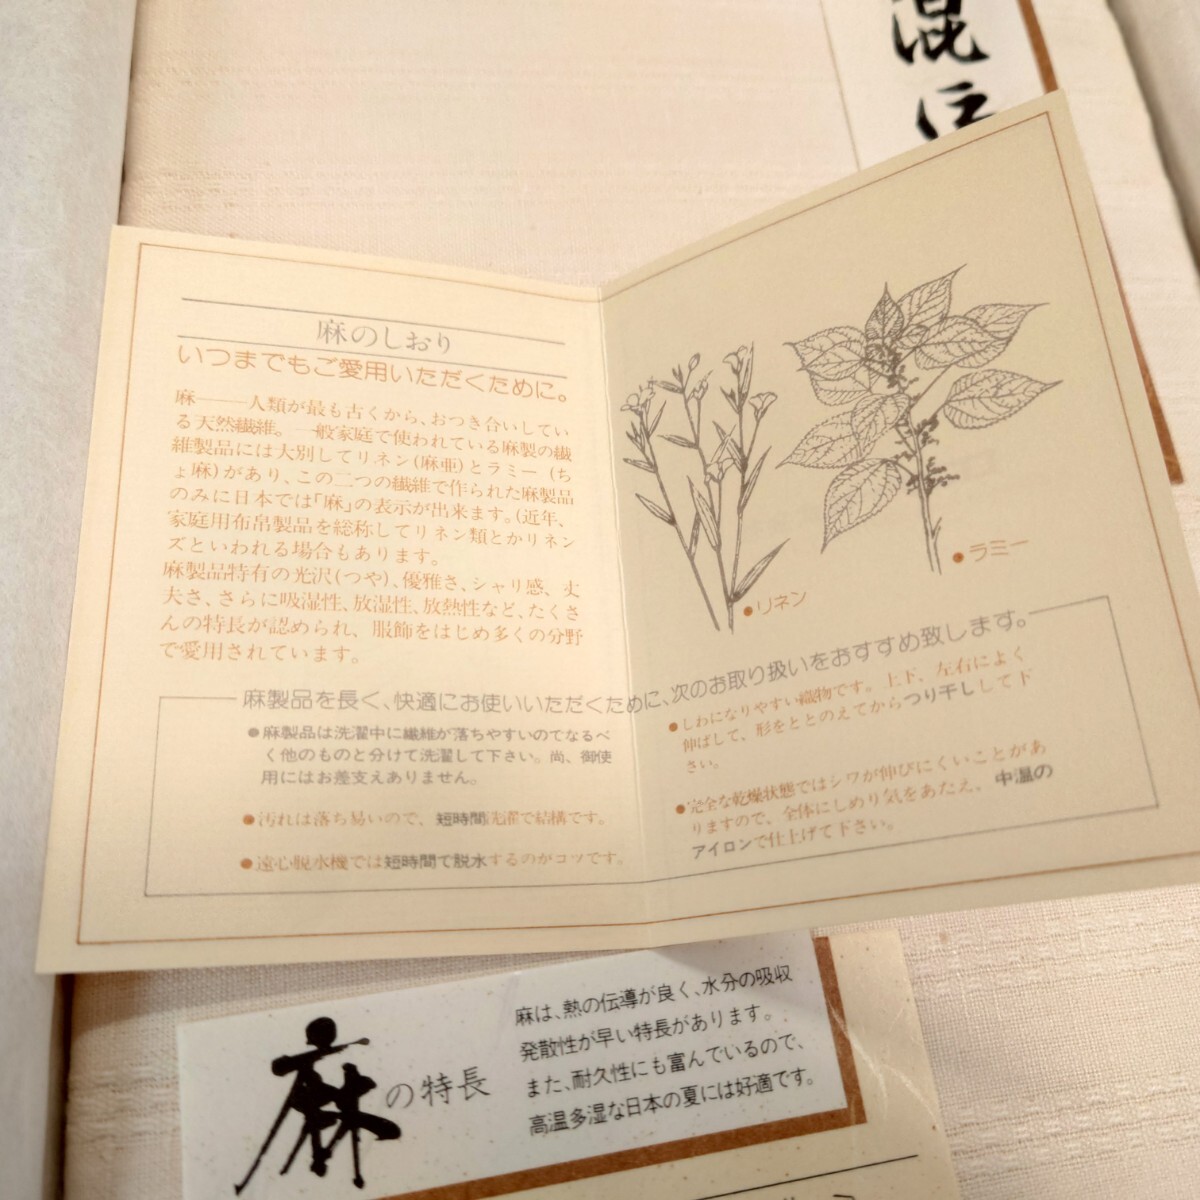 混
麻のしおり
いつまでもご愛用いただくために。
麻――人類が最も古くから、おつき合いしてい
る天然繊維。一般家庭で使われている麻製の繊
維製品には大別してリネン(麻亜)とラミー(ち
ょ麻)があり、この二つの繊維で作られた麻製品
のみに日本では「麻」の表示が出来ます。(近年、
家庭用布帛製品を総称してリネン類とかリネン
ズといわれる場合もあります。
麻製品特有の光沢(つや)、優雅さ、シャリ感、丈
夫さ、さらに吸湿性、放湿性、放熱性など、たくさ
んの特長が認められ、服飾をはじめ多くの分野
で愛用されています。
●リネン
●ラミー
麻製品を長く、快適にお使いいただくために、次のお取り扱いをおすすめ致します。
●麻製品は洗濯中に繊維が落ちやすいのでなるべ
く他のものと分けて洗濯して下さい。尚、御使
用にはお差支えありません。
●汚れは落ち易いので、短時間洗濯で結構です。
●遠心脱水機では短時間で脱水するのがコツです。
●しわになりやすい織物です。上下、左右によく
伸ばして、形をととのえてからつり干しして下
さい。
●完全な乾燥状態ではシワが伸びにくいことがあ
りますので、全体にしめり気をあたえ、中温の
アイロンで仕上げて下さい。
麻の特長
麻は、熱の伝導が良く、水分の吸収
発散性が早い特長があります。
また、耐久性にも富んでいるので、
高温多湿な日本の夏には好適です。